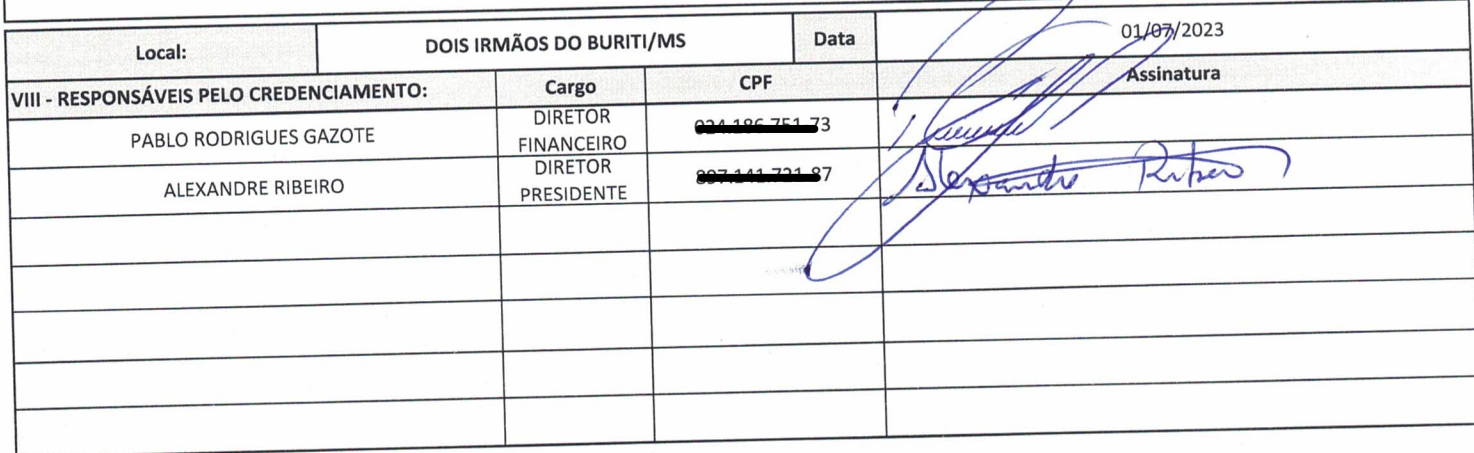 Local: DOIS IRMÃOS DO BURITI/MS Data 01/07/2023
VIII - RESPONSÁVEIS PELO CREDENCIAMENTO: Cargo CPF Assinatura
PABLO RODRIGUES GAZOTE DIRETOR FINANCEIRO 73
ALEXANDRE RIBEIRO DIRETOR PRESIDENTE 87 Alexandre Ribeiro